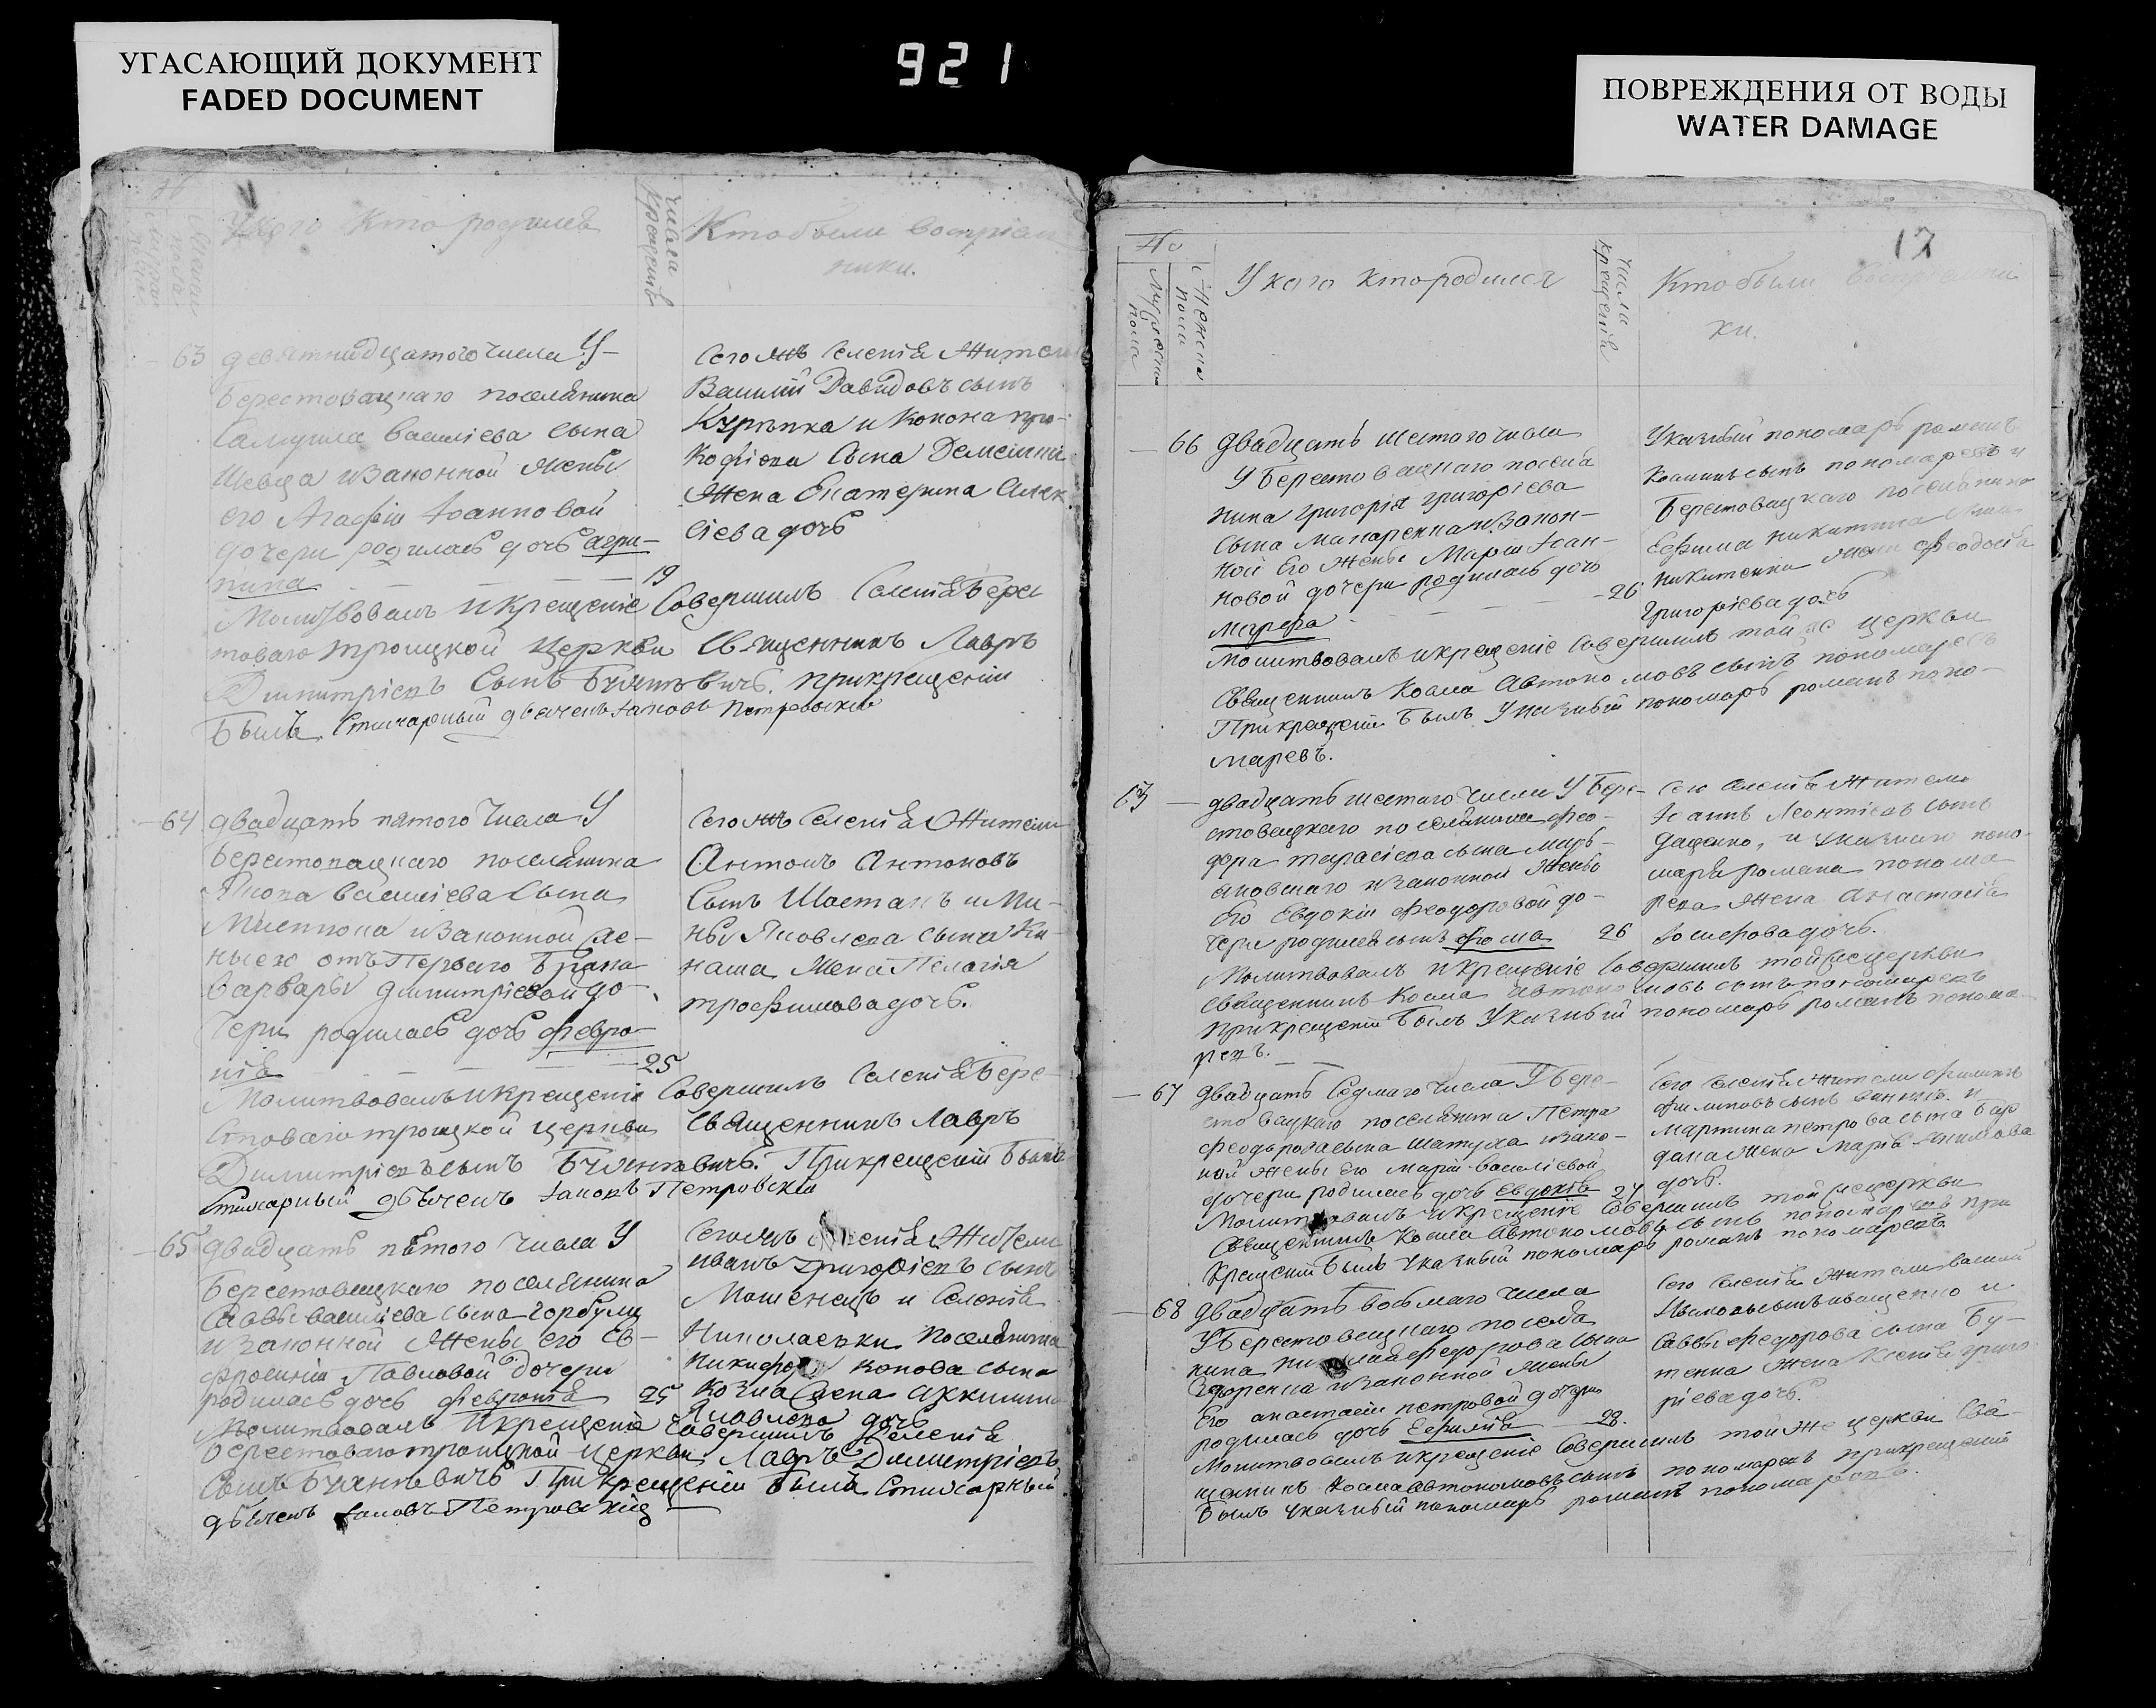 УГАСАЮЩИЙ ДОКУМЕНТ
FADED DOCUMENT
921
ПОВРЕЖДЕНИЯ ОТ ВОДЫ
WATER DAMAGE
У кого кто родился
числа крещенiя
Кто были воспрiем
ники.
63
девятнадцатого числа У
Берестовацкаго поселянина
Самуила Василiева сына
Шевца и законной жены
его Агафiи Iоанновой
дочери родилась дочь Агри-
пина
19
Сегожъ Селенiя Жители
Василiй Давидовъ сынъ
и Конона про-
кофiева сына
Жена Екатерина Алек
сiева дочь
Молитвовалъ и крещенiе Совершилъ Селенiя Бере
товаго троицкой Церкви Священникъ Лавръ
Димитрiевъ Сынъ при крещенiи
Былъ Стихарный дьячекъ Iаковъ Петровскiй
64
двадцать пятого Числа У
Берестовацкаго поселянина
Якова Василiева Сына
и Законной Же-
ны его отъ Перваго Брака
Варвары Димитрiевой до-
чери родилась дочь Февро-
нiя
25
Сегожъ Селенiя Жители
Антонъ Антоновъ
Сынъ Шостакъ и Ми-
ны Яковлева сына Ки-
наша Жена Пелагiя
трофимова дочь.
Молитвовалъ и крещенiе Совершилъ Селенiя Бере
стоваго троицкой церкви Священникъ Лавръ
Димитрiевъ сынъ При крещенiи Былъ
Стихарный дьячекъ Iаковъ Петровскiй
65
двадцать пятого Числа У
Берестовацкаго поселянина
Саввы василiева сына Горбули
и Законной Жены его Ев-
фросинiи Павловой дочери
родилась дочь Феvронiя
25
Сегожъ Селенiя Жители
иванъ григорiевъ сынъ
Мошенецъ и Селенiя
Николаевки поселянина
сына
Яковлева дочь
Молитвовалъ и крещенiе Совершилъ Селенiя
Берестоваго троицкой Церкви Лавръ Димитрiевъ
Сынъ При крещенiи Былъ Стихарный
дьячекъ Iаковъ Петровскiй
17
Но
Мужеска пола
Женска пола
У кого кто родился
числа крещенiй
Кто были
ки.
66
двадцать шестого числа
У Берестовацкаго поселя
нина григорiя григорiева
сына Макаренка и Закон-
ной Его Жены Марiи Iоан-
новой дочери родилась дочь
Марфа
26
Указный пономарь романъ
Козминъ сынъ пономаревъ и
Берестовацкаго поселянина
Ефима никитина
никитенка жена феодосiя
Григорiева дочь
Молитвовалъ и крещенiе Совершилъ той же церкви
Священникъ Косма Автономовъ сынъ пономаревъ
При крещенiи Былъ Указный пономарь романъ поно-
маревъ.
63
двадцать шестаго числа У Бере-
стовацкаго поселянина Фео-
дора тарасiева сына
и законной Жены
Его Евдокiи Феодоровой до-
чери родился сынъ Фома
26
Сего Селенiя Жители
Iоаннъ Леонтiевъ сынъ
Даценко, и Указнаго поно-
маря романа понома
рева Жена Анастасiя
Iосифова дочь.
Молитвовалъ и крещенiе Совершилъ той же церкви
Священникъ Косма Автономовъ сынъ пономаревъ
При крещенiи Былъ Указный пономарь романъ понома-
ревъ.
67
двадцать Седмаго Числа У Бере-
стовацкаго поселянина Петра
Феодорова сына Шатула и зако-
ной Жены Его Марiи Василiевой
дочери родилась дочь Евдокiя
27
Сего Селенiя Жители Филипъ
Филиповъ сынъ и
Мартина петрова сына
Жена Марiя Якимова
дочь.
Молитвовалъ и крещенiе Совершилъ той же церкви
Священникъ Косма Автономовъ сынъ пономаревъ при
крещенiи Былъ Указный пономарь романъ пономаревъ
68
двадцать восьмаго числа
У Берестовацкаго поселя
нина николая Федорова сына
и законной жены
Его анастасiи петровой дочери
родилась дочь Ефимiя
28.
Сего Селенiя Жители василiй
сынъ иващенко и
Саввы Федорова сына Бу-
тенка Жена Ксенiя григо
рiева дочь.
Молитвовалъ и крещенiе Совершилъ той же церкви Свя-
щенникъ Косма автономовъ сынъ пономаревъ при крещенiи
Былъ Указный пономарь романъ пономаревъ.